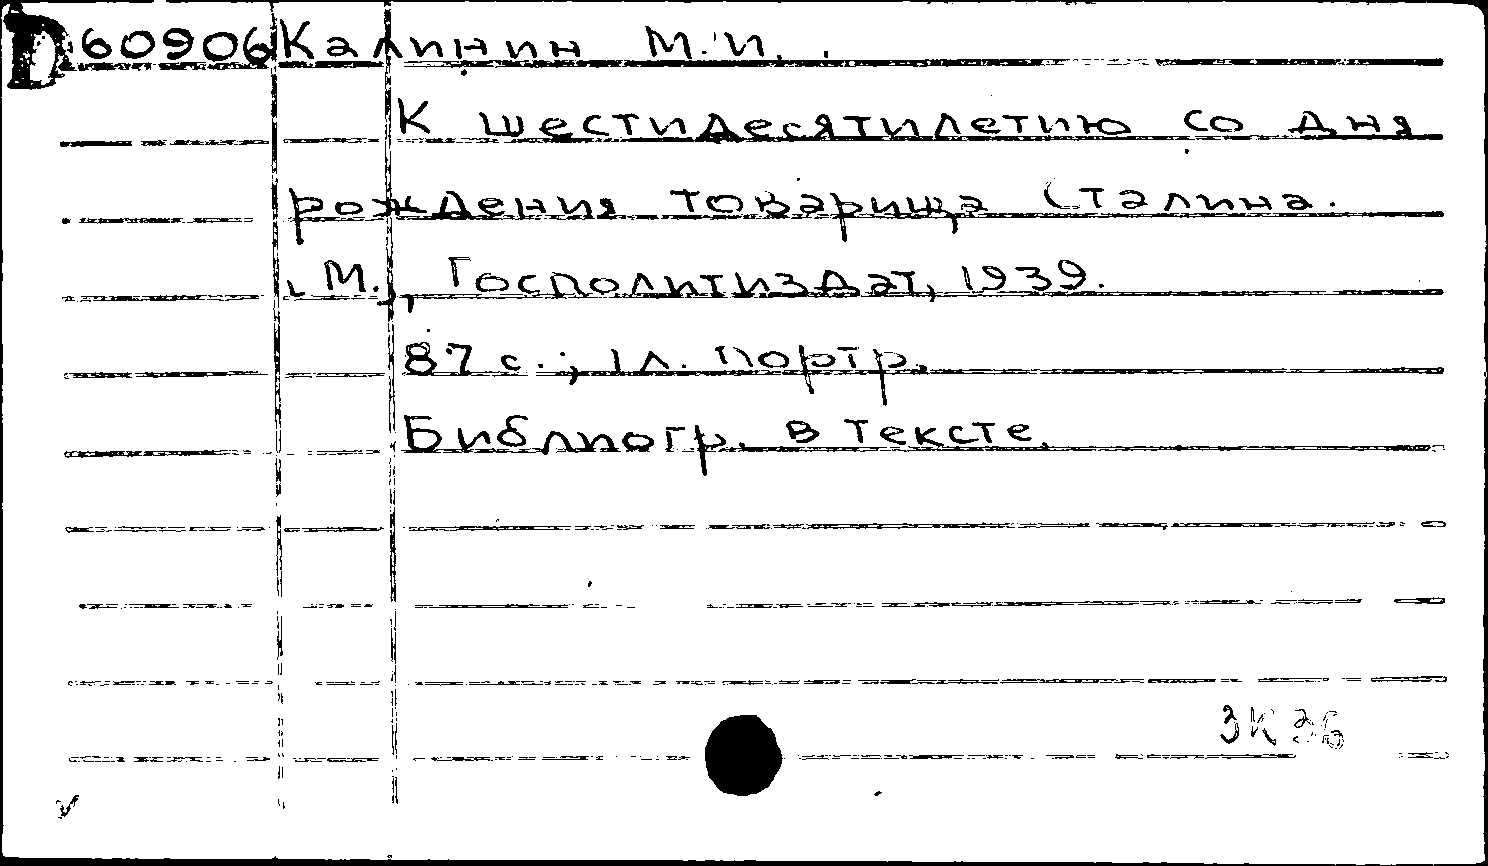 D60906 Калинин М.И.
К шестидесятилетию со дня
рождения товарища Сталина.
М., Госполитиздат, 1939.
87 с.; 1 л. портр.
Библиогр. в тексте.
3К26